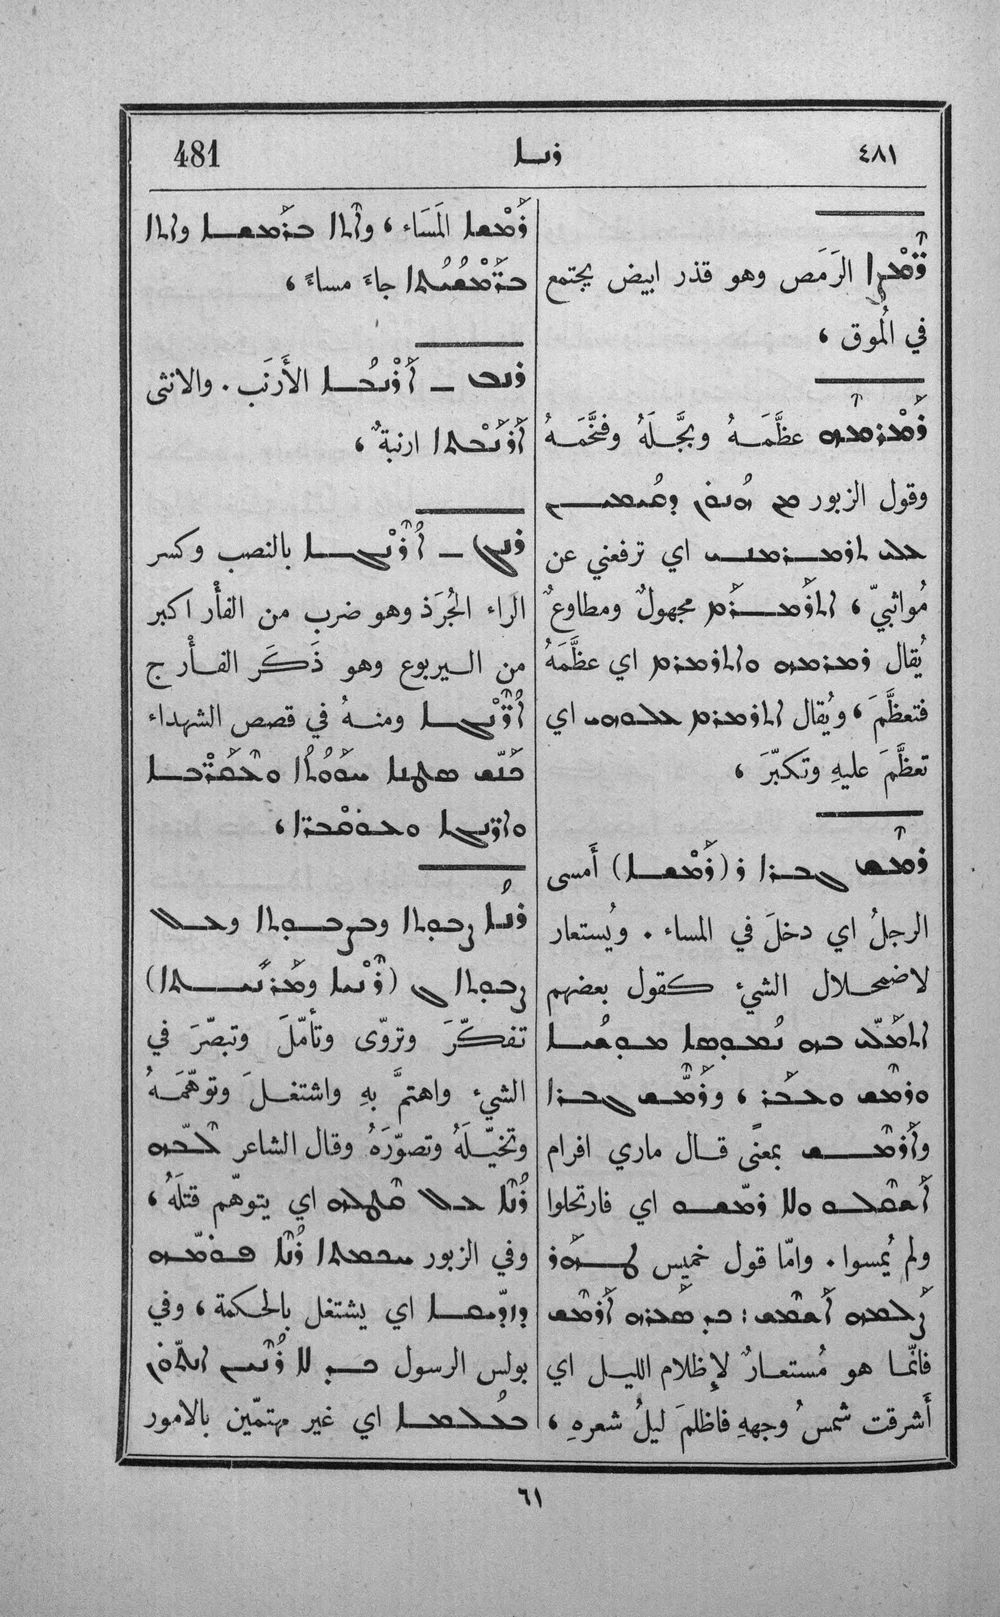 ٤٨١ ܪܢܐ 481
ܪ̈ܡܨܐ الرَمَص وهو قذر ابيض يجتمع
في المُوق ،
ܪܡܪܡܗ عظَّمَهُ وبجَّلَهُ وفخَّمَهُ
وقول الزبور ܡܢ ܗܢܘܢ ܕܩܝܡܝܢ
ܥܠܝ ܬܪܡܪܡܝܢܝ اي ترفعني عن
مُواثبيّ ، ܐܬܪܡܪܡ مجهولٌ ومطاوعٌ
يُقال ܪܡܪܡܗ ܘܐܬܪܡܪܡ اي عظَّمَهُ
فتعظَّمَ ، ويُقال ܐܬܪܡܪܡ ܥܠܘܗܝ اي
تعظَّمَ عليهِ وتكبّرَ ،
ܪܡܫ ܓܒܪܐ ܪ (ܪܡܫܐ) أَمسى
الرجلُ اي دخلَ في المساء . ويُستعار
لاضمحلال الشيء كقول بعضهم
ܐܬܡܠܝ ܒܗ ܢܡܘܣܐ ܡܘܫܝܐ
ܘܪܡܫ ܘܥܒܪ ، وܪܡܫ ܓܒܪܐ
وܐܪܡܫ بمعنًى قال ماري افرام
ܐܫܩܠܘ ܘܠܐ ܪܡܫܘ اي فارتحلوا
ولم يُمسوا . وامّا قول خميس
ܨܠܡܗ ܐܫܡܫ : ܟܕ ܣܥܪܗ ܐܪܡܫ
فانّما هو مُستعارٌ لإظلام الليل اي
أَشرقت شمسُ وجههِ فاظلمَ ليلُ شعرهِ ،
ܪܡܫܐ المَسَاء ، وܐܬܐ ܒܪܡܫܐ وܐܬܐ
ܒܪܡܫܝܬܐ جاءَ مساءً ،
ܪܢܒ ــ ܐܪܢܒܐ الأَرنَب . والانثى
ܐܪܢܒܬܐ ارنبةٌ ،
ܪܢܓ ــ ܐܪܢܓܐ بالنصب وكسر
الراء الجُرَذ وهو ضرب من الفأْر اكبر
من اليربوع وهو ذَكَر الفأْر ج
ܐܪ̈ܢܓܐ ومنهُ في قصص الشهداء
ܘܥܩܪ̈ܒܐ
ܘܐܪ̈ܢܓܐ ܘܥܘܩܒܪ̈ܐ ،
ܪܢܐ ܨܒܘܬܐ وܒܨܒܘܬܐ وܥܠ
ܨܒܘܬܐ (ܪܢܝܐ وܡܪܢܝܬܐ)
تفكّرَ وتروّى وتأمّلَ وتبصّرَ في
الشيء واهتمَّ بهِ واشتغلَ وتوهّمَهُ
وتخيّلَهُ وتصوّرَهُ وقال الشاعر ܠܒܗ
ܪܢܐ ܥܠ ܩܛܠܗ اي يتوهّم قتلَهُ ،
وفي الزبور ܚܟܡܬܐ ܪܢܐ ܦܘܡܗ
ܕܙܕܝܩܐ اي يشتغل بالحكمة ، وفي
بولس الرسول ܟܕ ܠܐ ܪܢܝܢ
ܒܥܠܡܐ اي غير مهتمّين بالامور
٦١